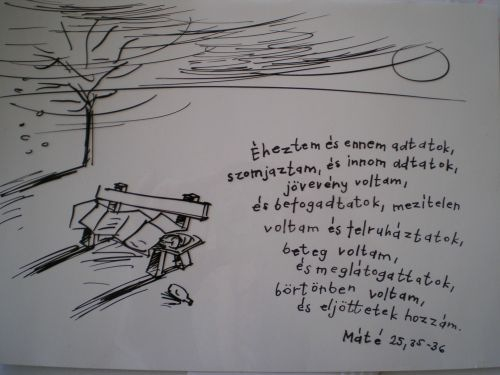 Éheztem és ennem adtatok,
szomjaztam, és innom adtatok,
jövevény voltam,
és befogadtatok, mezítelen
voltam és felruháztatok,
beteg voltam,
és meglátogattatok,
börtönben voltam,
és eljöttetek hozzám.
Máté 25,35-36